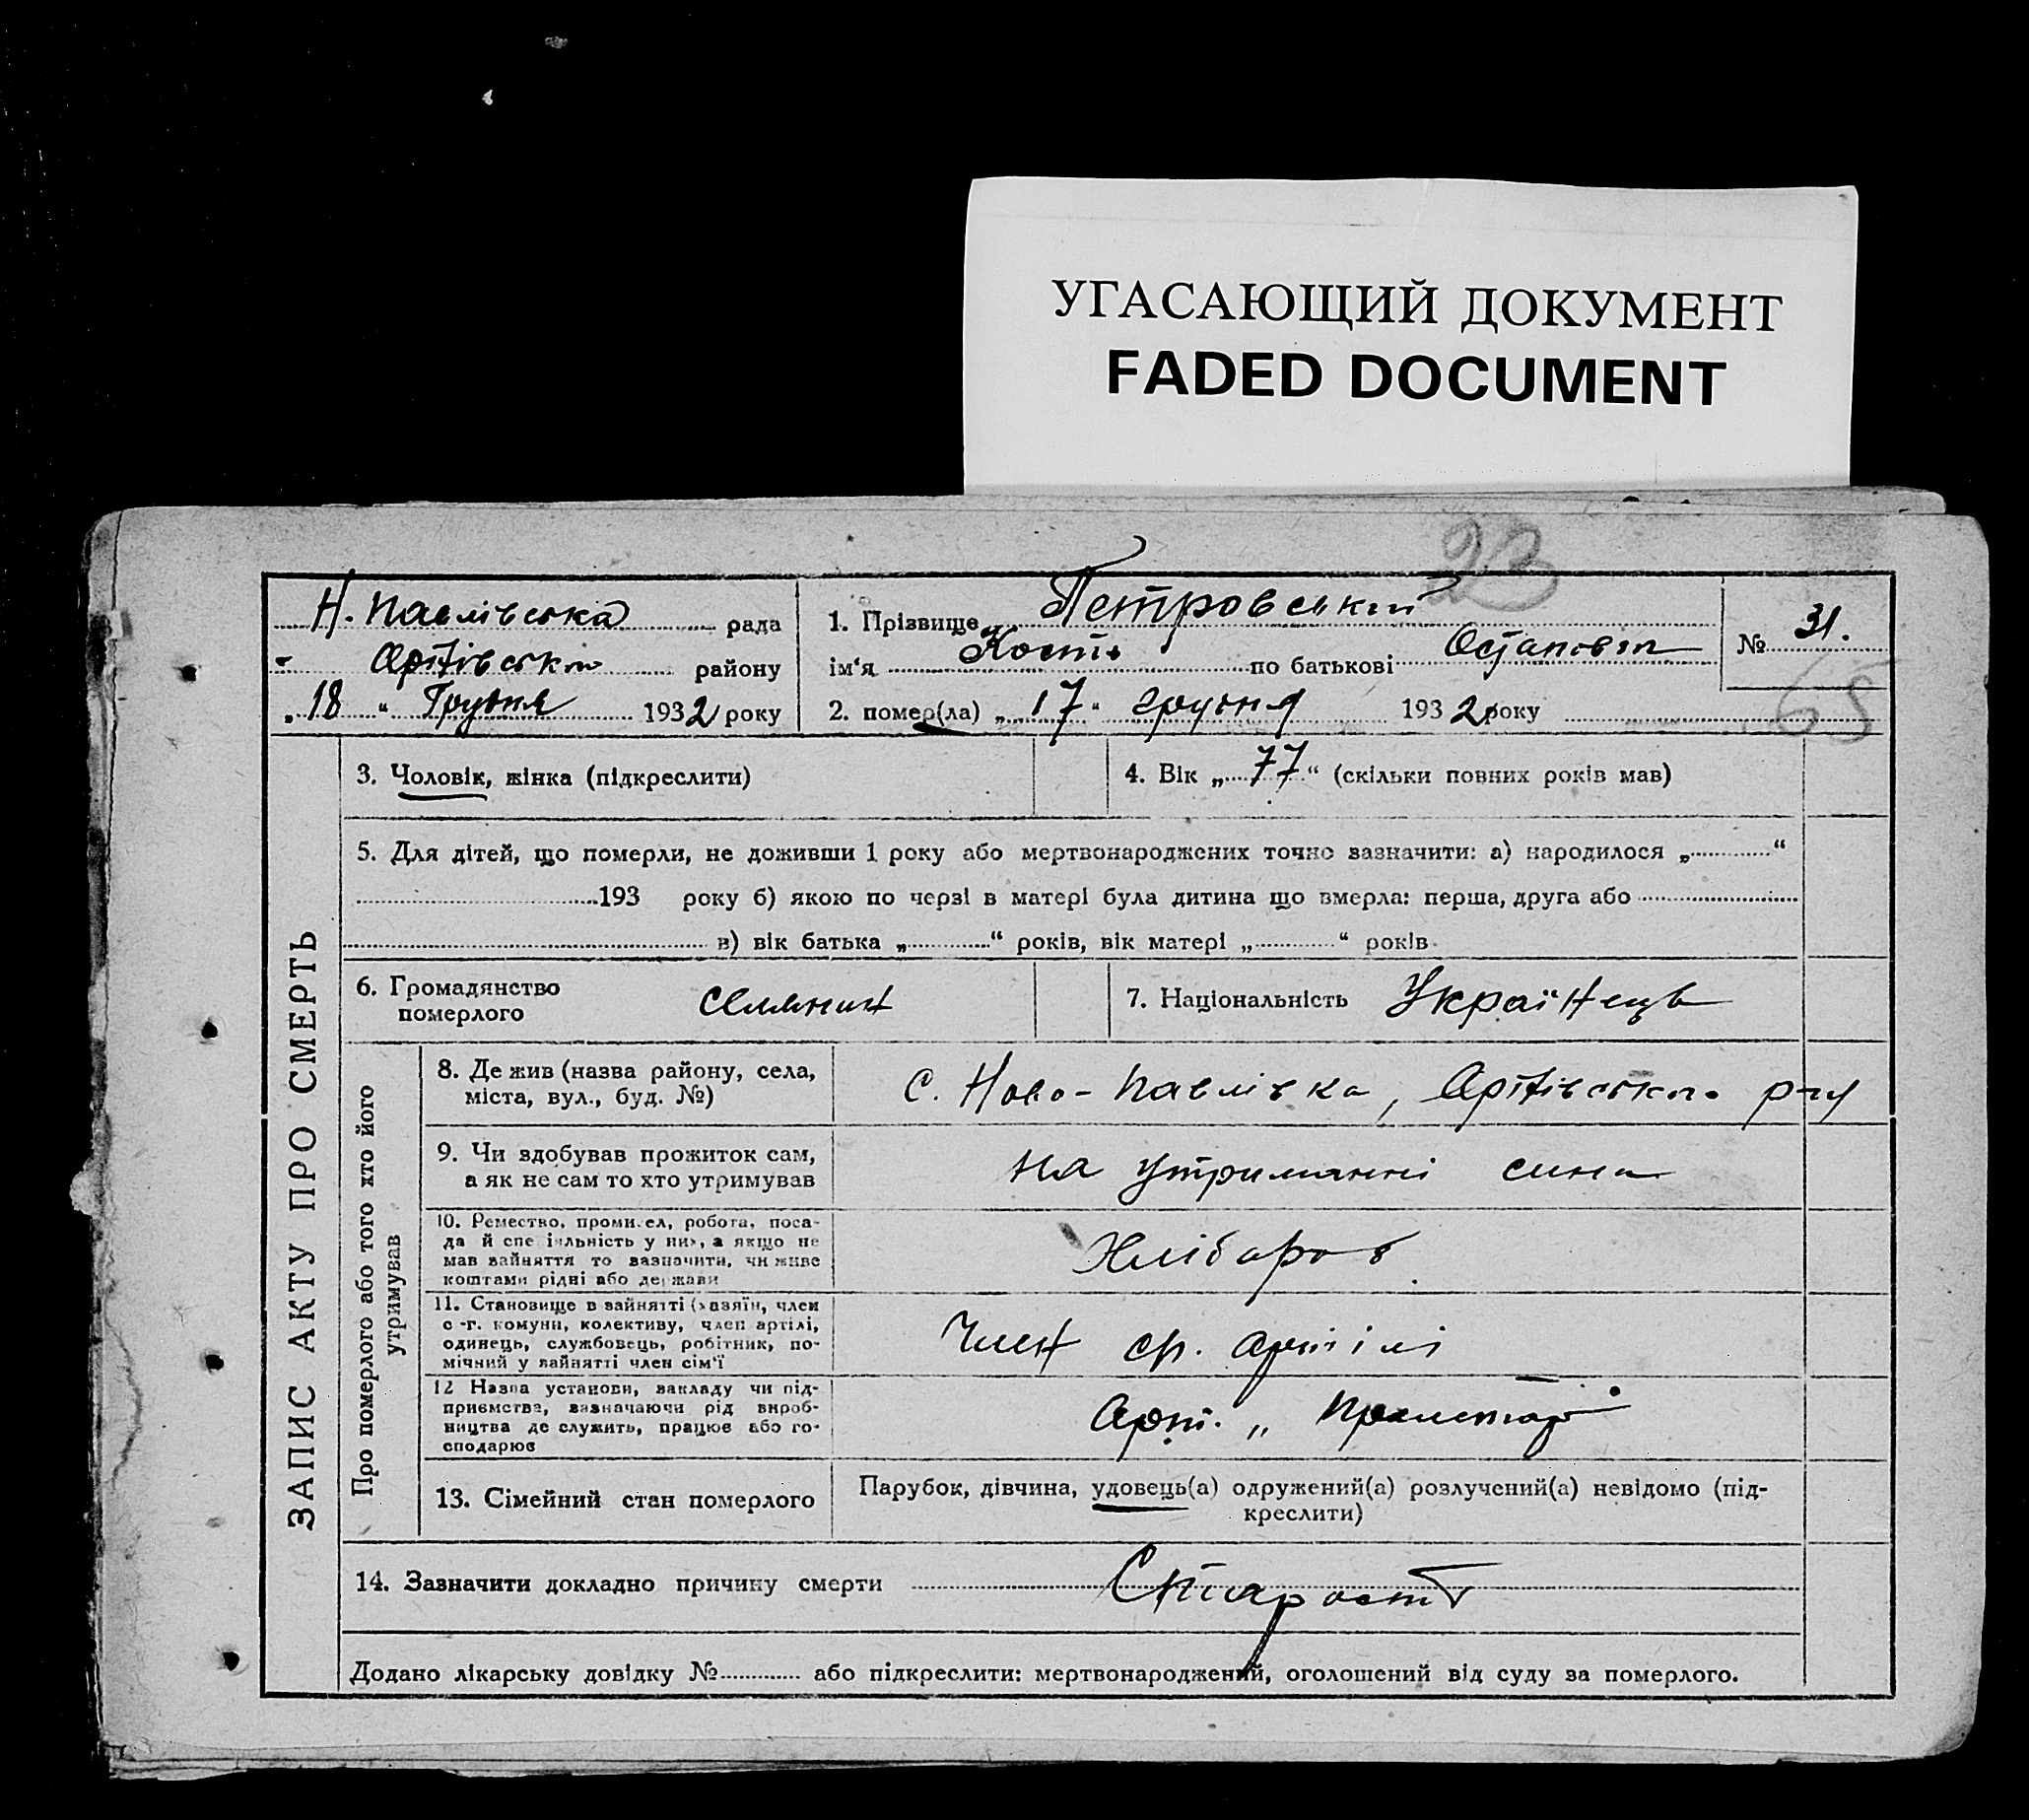 УГАСАЮЩИЙ ДОКУМЕНТ
FADED DOCUMENT
23
Н. Павлівська рада
Арбузівськ району
„18“ Грудня 1932 року
1. Прізвище Петровський
ім'я Кость по батькові Остапович
№ 31.
65
2. помер(ла) „17“ грудня 1932 року
ЗАПИС АКТУ ПРО СМЕРТЬ
3. Чоловік, жінка (підкреслити)
4. Вік „77“ (скільки повних років мав)
5. Для дітей, що померли, не доживши 1 року або мертвонароджених точно зазначити: а) народилося „ “
193 року б) якою по черзі в матері була дитина що вмерла: перша, друга або
в) вік батька „ “ років, вік матері „ “ років
6. Громадянство
померлого
селянин
7. Національність Українець
Про померлого або того хто його
утримував
8. Де жив (назва району, села,
міста, вул., буд. №)
с. Ново-Павлівка, р-ну
9. Чи здобував прожиток сам,
а як не сам то хто утримував
на утриманні сина
10. Ремество, промисел, робота, поса-
да й спеціяльність у них, а якщо не
мав зайняття то зазначити, чи живе
коштами рідні або держави
Хлібороб
11. Становище в зайнятті (хазяїн, член
с.-г. комуни, колективу, член артілі,
одинець, службовець, робітник, по-
мічний у зайнятті член сім'ї
Член ср. артілі
12 Назва установи, закладу чи під-
приємства, зазначаючи рід вироб-
ництва де служить, працює або го-
сподарює
Арт. „Пролетар
13. Сімейний стан померлого
Парубок, дівчина, удовець(а) одружений(а) розлучений(а) невідомо (під-
креслити)
14. Зазначити докладно причину смерти Старость
Додано лікарську довідку № або підкреслити: мертвонароджений, оголошений від суду за померлого.